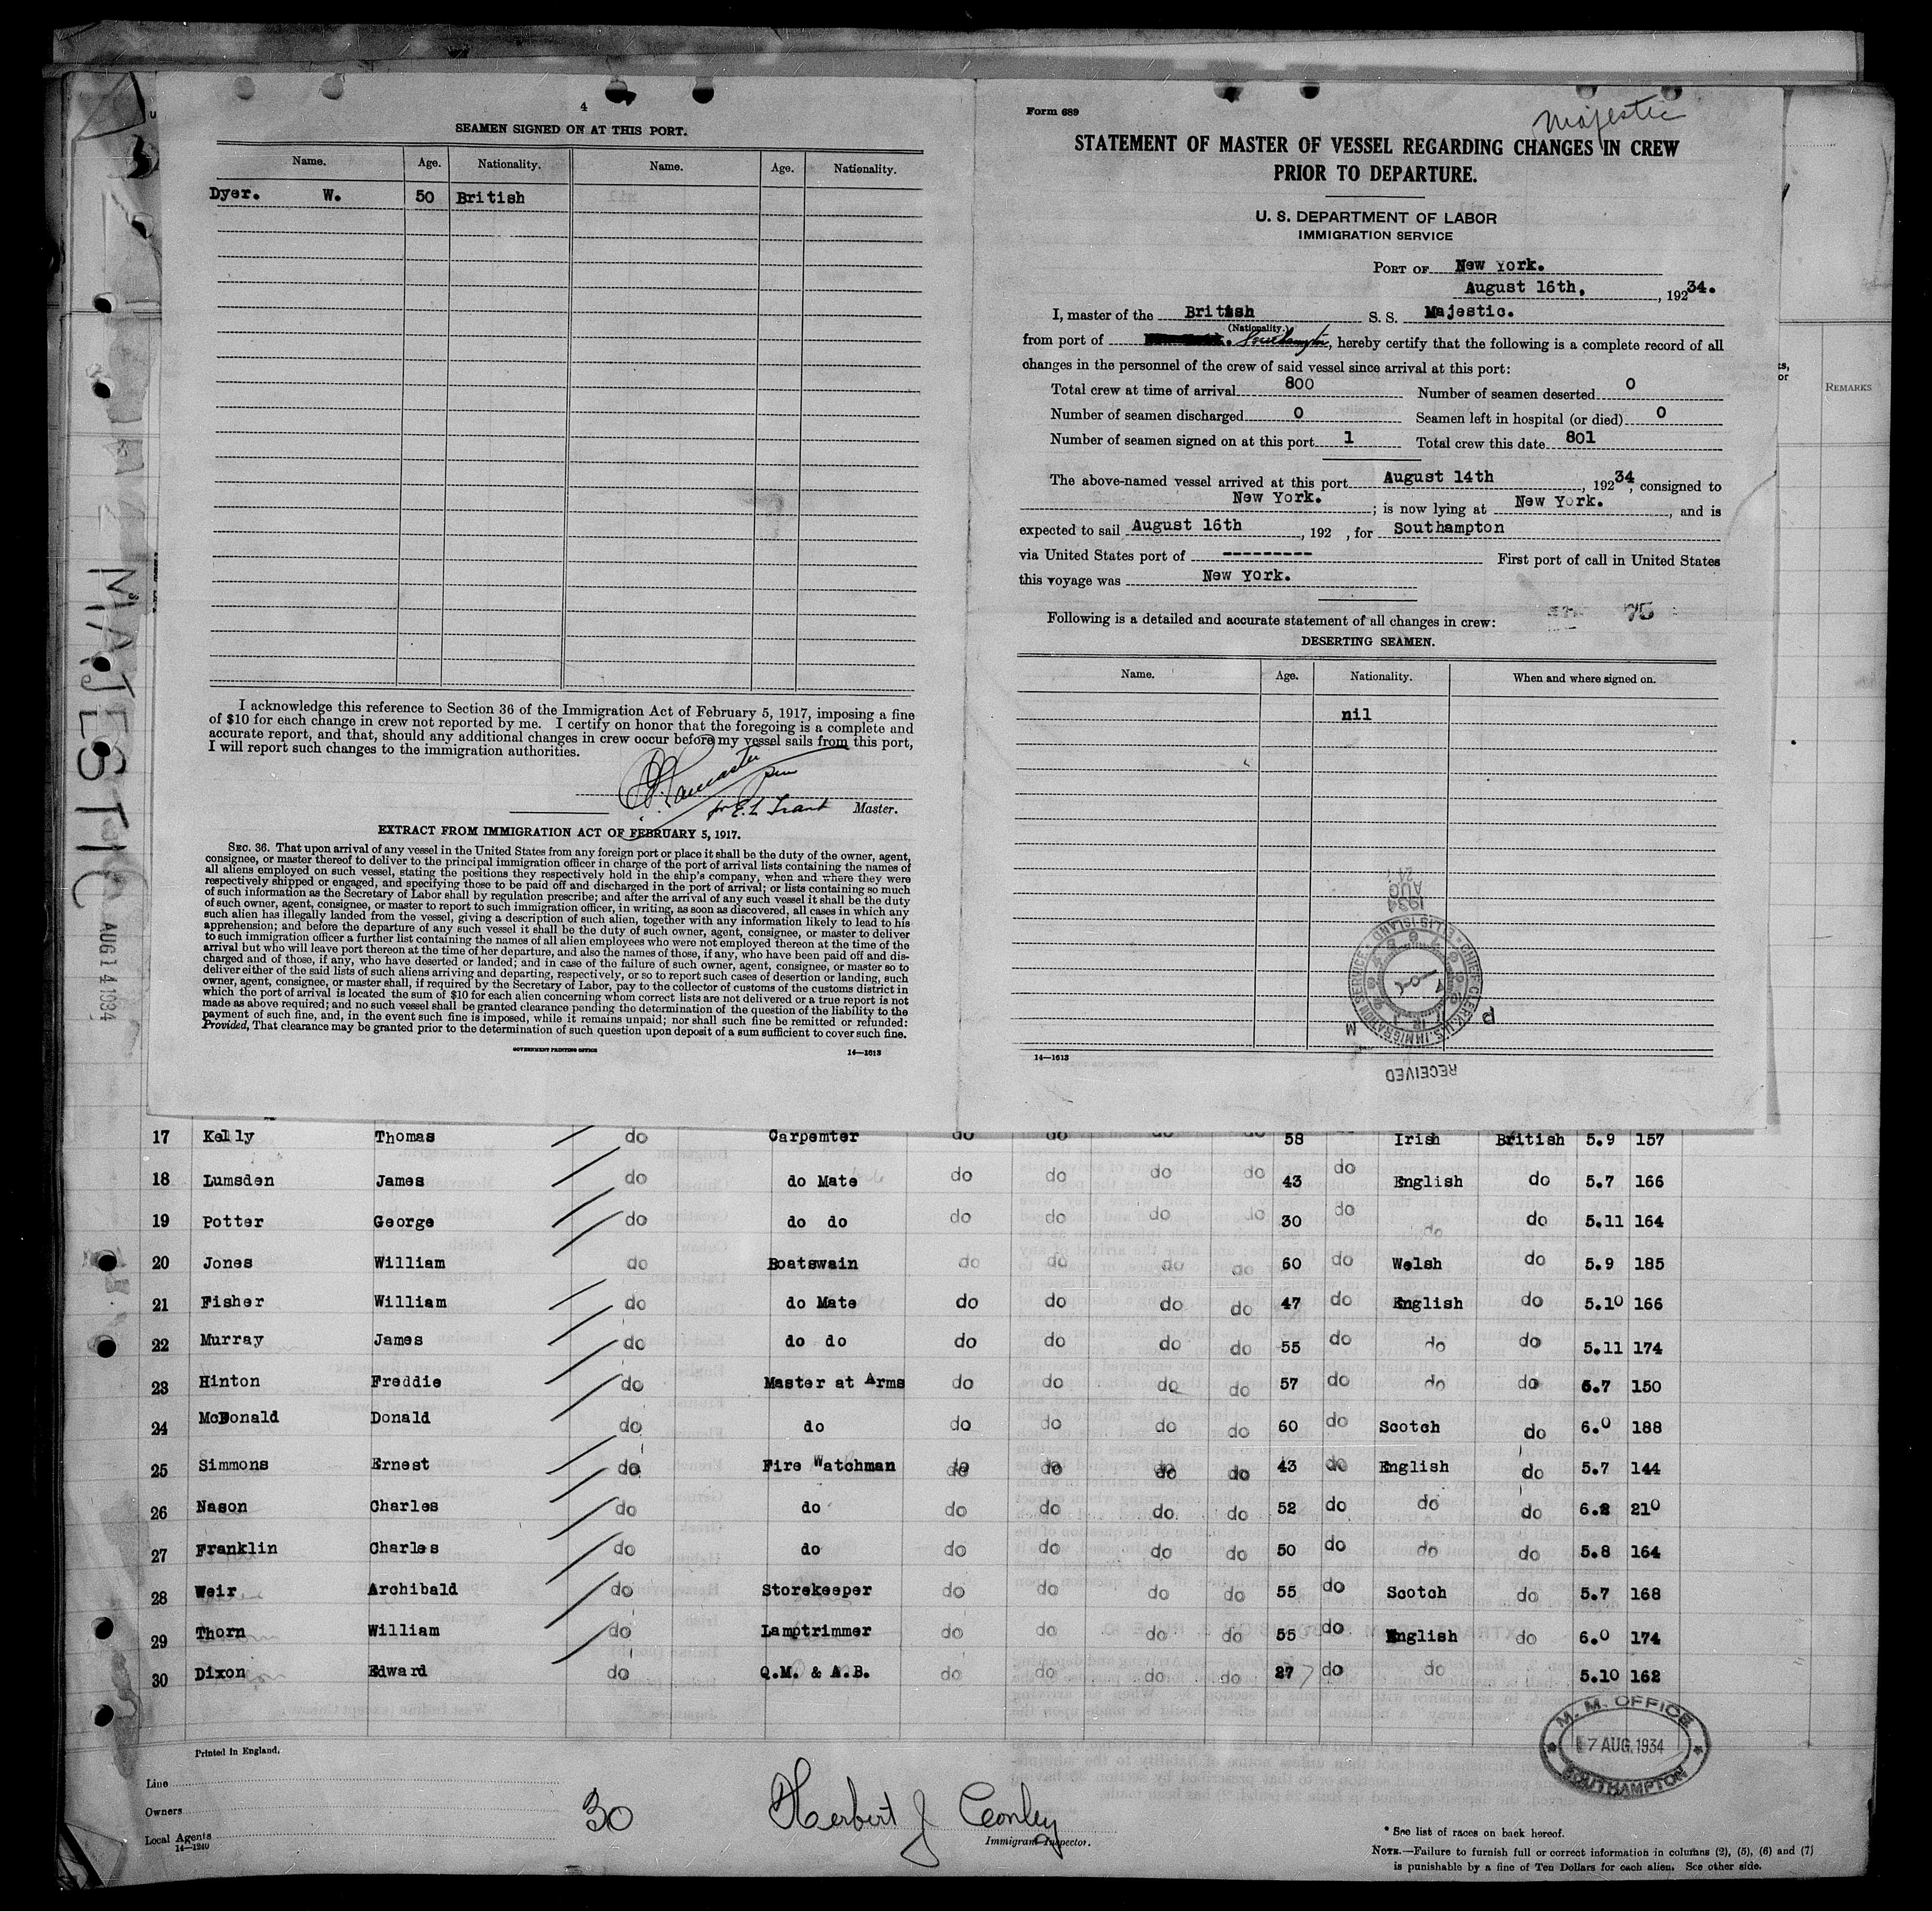 4
SEAMEN SIGNED ON AT THIS PORT.
Name. Age. Nationality. Name. Age. Nationality.
Dyer. W. 50 British
I acknowledge this reference to Section 36 of the Immigration Act of February 5, 1917, imposing a fine
of $10 for each change in crew not reported by me. I certify on honor that the foregoing is a complete and
accurate report, and that, should any additional changes in crew occur before my vessel sails from this port,
I will report such changes to the immigration authorities.
Lancaster
for E. L. Trant Master.
EXTRACT FROM IMMIGRATION ACT OF FEBRUARY 5, 1917.
SEC. 36. That upon arrival of any vessel in the United States from any foreign port or place it shall be the duty of the owner, agent,
consignee, or master thereof to deliver to the principal immigration officer in charge of the port of arrival lists containing the names of
all aliens employed on such vessel, stating the positions they respectively hold in the ship's company, when and where they were
respectively shipped or engaged, and specifying those to be paid off and discharged in the port of arrival; or lists containing so much
of such information as the Secretary of Labor shall by regulation prescribe; and after the arrival of any such vessel it shall be the duty
of such owner, agent, consignee, or master to report to such immigration officer, in writing, as soon as discovered, all cases in which any
such alien has illegally landed from the vessel, giving a description of such alien, together with any information likely to lead to his
apprehension; and before the departure of any such vessel it shall be the duty of such owner, agent, consignee, or master to deliver
to such immigration officer a further list containing the names of all alien employees who were not employed thereon at the time of the
arrival but who will leave port thereon at the time of her departure, and also the names of those, if any, who have been paid off and dis-
charged and of those, if any, who have deserted or landed; and in case of the failure of such owner, agent, consignee, or master so to
deliver either of the said lists of such aliens arriving and departing, respectively, or so to report such cases of desertion or landing, such
owner, agent, consignee, or master shall, if required by the Secretary of Labor, pay to the collector of customs of the customs district in
which the port of arrival is located the sum of $10 for each alien concerning whom correct lists are not delivered or a true report is not
made as above required; and no such vessel shall be granted clearance pending the determination of the question of the liability to the
payment of such fine, and, in the event such fine is imposed, while it remains unpaid; nor shall such fine be remitted or refunded:
Provided, That clearance may be granted prior to the determination of such question upon deposit of a sum sufficient to cover such fine.
GOVERNMENT PRINTING OFFICE 14—1613
Form 689
Majestic
STATEMENT OF MASTER OF VESSEL REGARDING CHANGES IN CREW
PRIOR TO DEPARTURE.
U. S. DEPARTMENT OF LABOR
IMMIGRATION SERVICE
PORT OF New York.
August 16th, , 192 34.
I, master of the British S. S. Majestic.
(Nationality.)
from port of Southampton, hereby certify that the following is a complete record of all
changes in the personnel of the crew of said vessel since arrival at this port:
Total crew at time of arrival 800 Number of seamen deserted 0
Number of seamen discharged 0 Seamen left in hospital (or died) 0
Number of seamen signed on at this port 1 Total crew this date 801
The above-named vessel arrived at this port August 14th , 192 34, consigned to
New York. ; is now lying at New York. , and is
expected to sail August 16th , 192 , for Southampton
via United States port of --------- First port of call in United States
this voyage was New York.
75
Following is a detailed and accurate statement of all changes in crew:
DESERTING SEAMEN.
Name. Age. Nationality. When and where signed on.
nil
1934
AUG
24
CHIEF CLERK U.S. IMMIGRATION SERVICE ELLIS ISLAND
P M
RECEIVED
14—1613
REMARKS
MAJESTIC
AUG 14 1934
17 Kelly Thomas do Carpemter do do do do 58 do Irish British 5.9 157
18 Lumsden James do do Mate do do do do 43 do English do 5.7 166
19 Potter George do do do do do do do 30 do do do 5.11 164
20 Jones William do Boatswain do do do do 60 do Welsh do 5.9 185
21 Fisher William do do Mate do do do do 47 do English do 5.10 166
22 Murray James do do do do do do do 55 do do do 5.11 174
23 Hinton Freddie do Master at Arms do do do do 57 do do do 5.7 150
24 McDonald Donald do do do do do do 60 do Scotch do 6.0 188
25 Simmons Ernest do Fire Watchman do do do do 43 do English do 5.7 144
26 Nason Charles do do do do do do 52 do do do 6.2 210
27 Franklin Charles do do do do do do 50 do do do 5.8 164
28 Weir Archibald do Storekeeper do do do do 55 do Scotch do 5.7 168
29 Thorn William do Lamptrimmer do do do do 55 do English do 6.0 174
30 Dixon Edward do Q.M. & A.B. do do do do 27 do do 5.10 162
M. M. OFFICE
7 AUG. 1934
SOUTHAMPTON
Printed in England.
Line
Owners
Local Agents
14—1240
30
Herbert J Conley
Immigrant Inspector.
* See list of races on back hereof.
NOTE.—Failure to furnish full or correct information in columns (2), (5), (6) and (7)
is punishable by a fine of Ten Dollars for each alien. See other side.